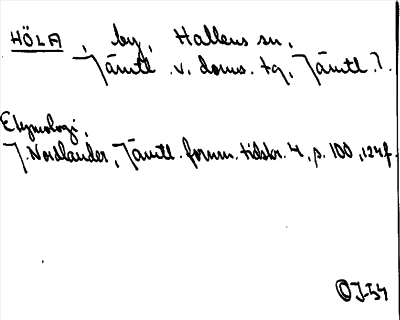 HÖLA, by, Hallens sn,
Jämtl. v. doms. tg, Jämtl. l.
Etymologi,
J. Nordlander, Jämtl. fornm. tidskr. 4, p. 100, 124 f.
OJ-54